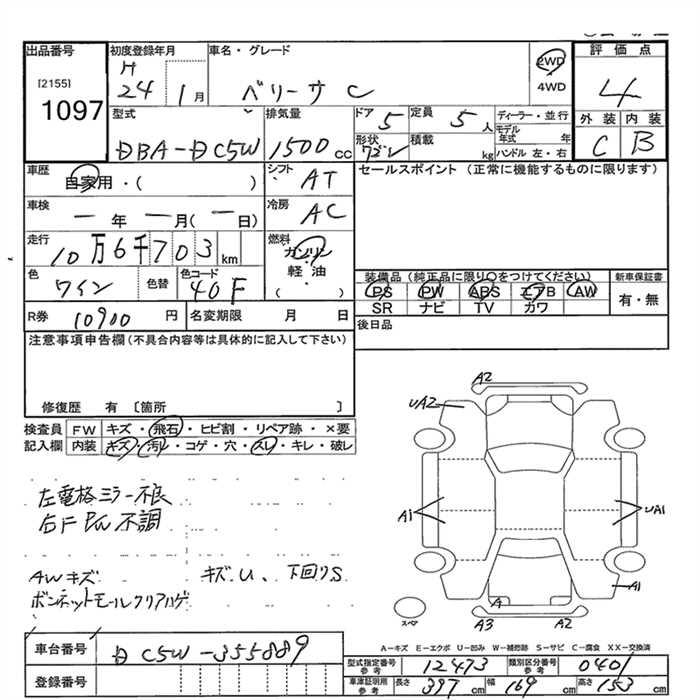 出品番号 初度登録年月 車名・グレード 評価点
[2155] H 2WD
1097 24 1月 ベリーサ C 4WD 4
型式 排気量 ドア 定員 ディーラー・並行 外装 内装
DBA-DC5W 1500cc 5 5人 モデル年式 年 C B
形状 積載 kg ハンドル 左・右
ワゴン
車歴 シフト セールスポイント (正常に機能するものに限ります)
自家用・( ) AT
車検 冷房
一年 一月(一日) AC
走行 燃料
10万6千703km ガソリン
軽油
( )
色 色替 色コード 装備品 (純正品に限り○をつけてください) 新車保証書
ワイン 40F PS PW ABS エアB AW 有・無
SR ナビ TV カワ
R券 10900円 名変期限 月 日 後日品
注意事項申告欄(不具合内容等は具体的に記入して下さい)
修復歴 有 〔箇所 〕
検査員 FW キズ・飛石・ヒビ割・リペア跡・×要
記入欄 内装 キズ・汚れ・コゲ・穴・スレ・キレ・破レ
左電格ミラー不良
右F PW 不調
AWキズ キズU、下回りS
ボンネットモールクリアハゲ
A2
UA2
A1 UA1
A1
A
スペア A3 A2
A-キズ E-エクボ U-凹み W-補修跡 S-サビ C-腐食 XX-交換済
車台番号 DC5W-355889
型式指定番号 参考 12473 類別区分番号 参考 0401
登録番号 車庫証明用 参考 長さ 397cm 幅 169cm 高さ 153cm